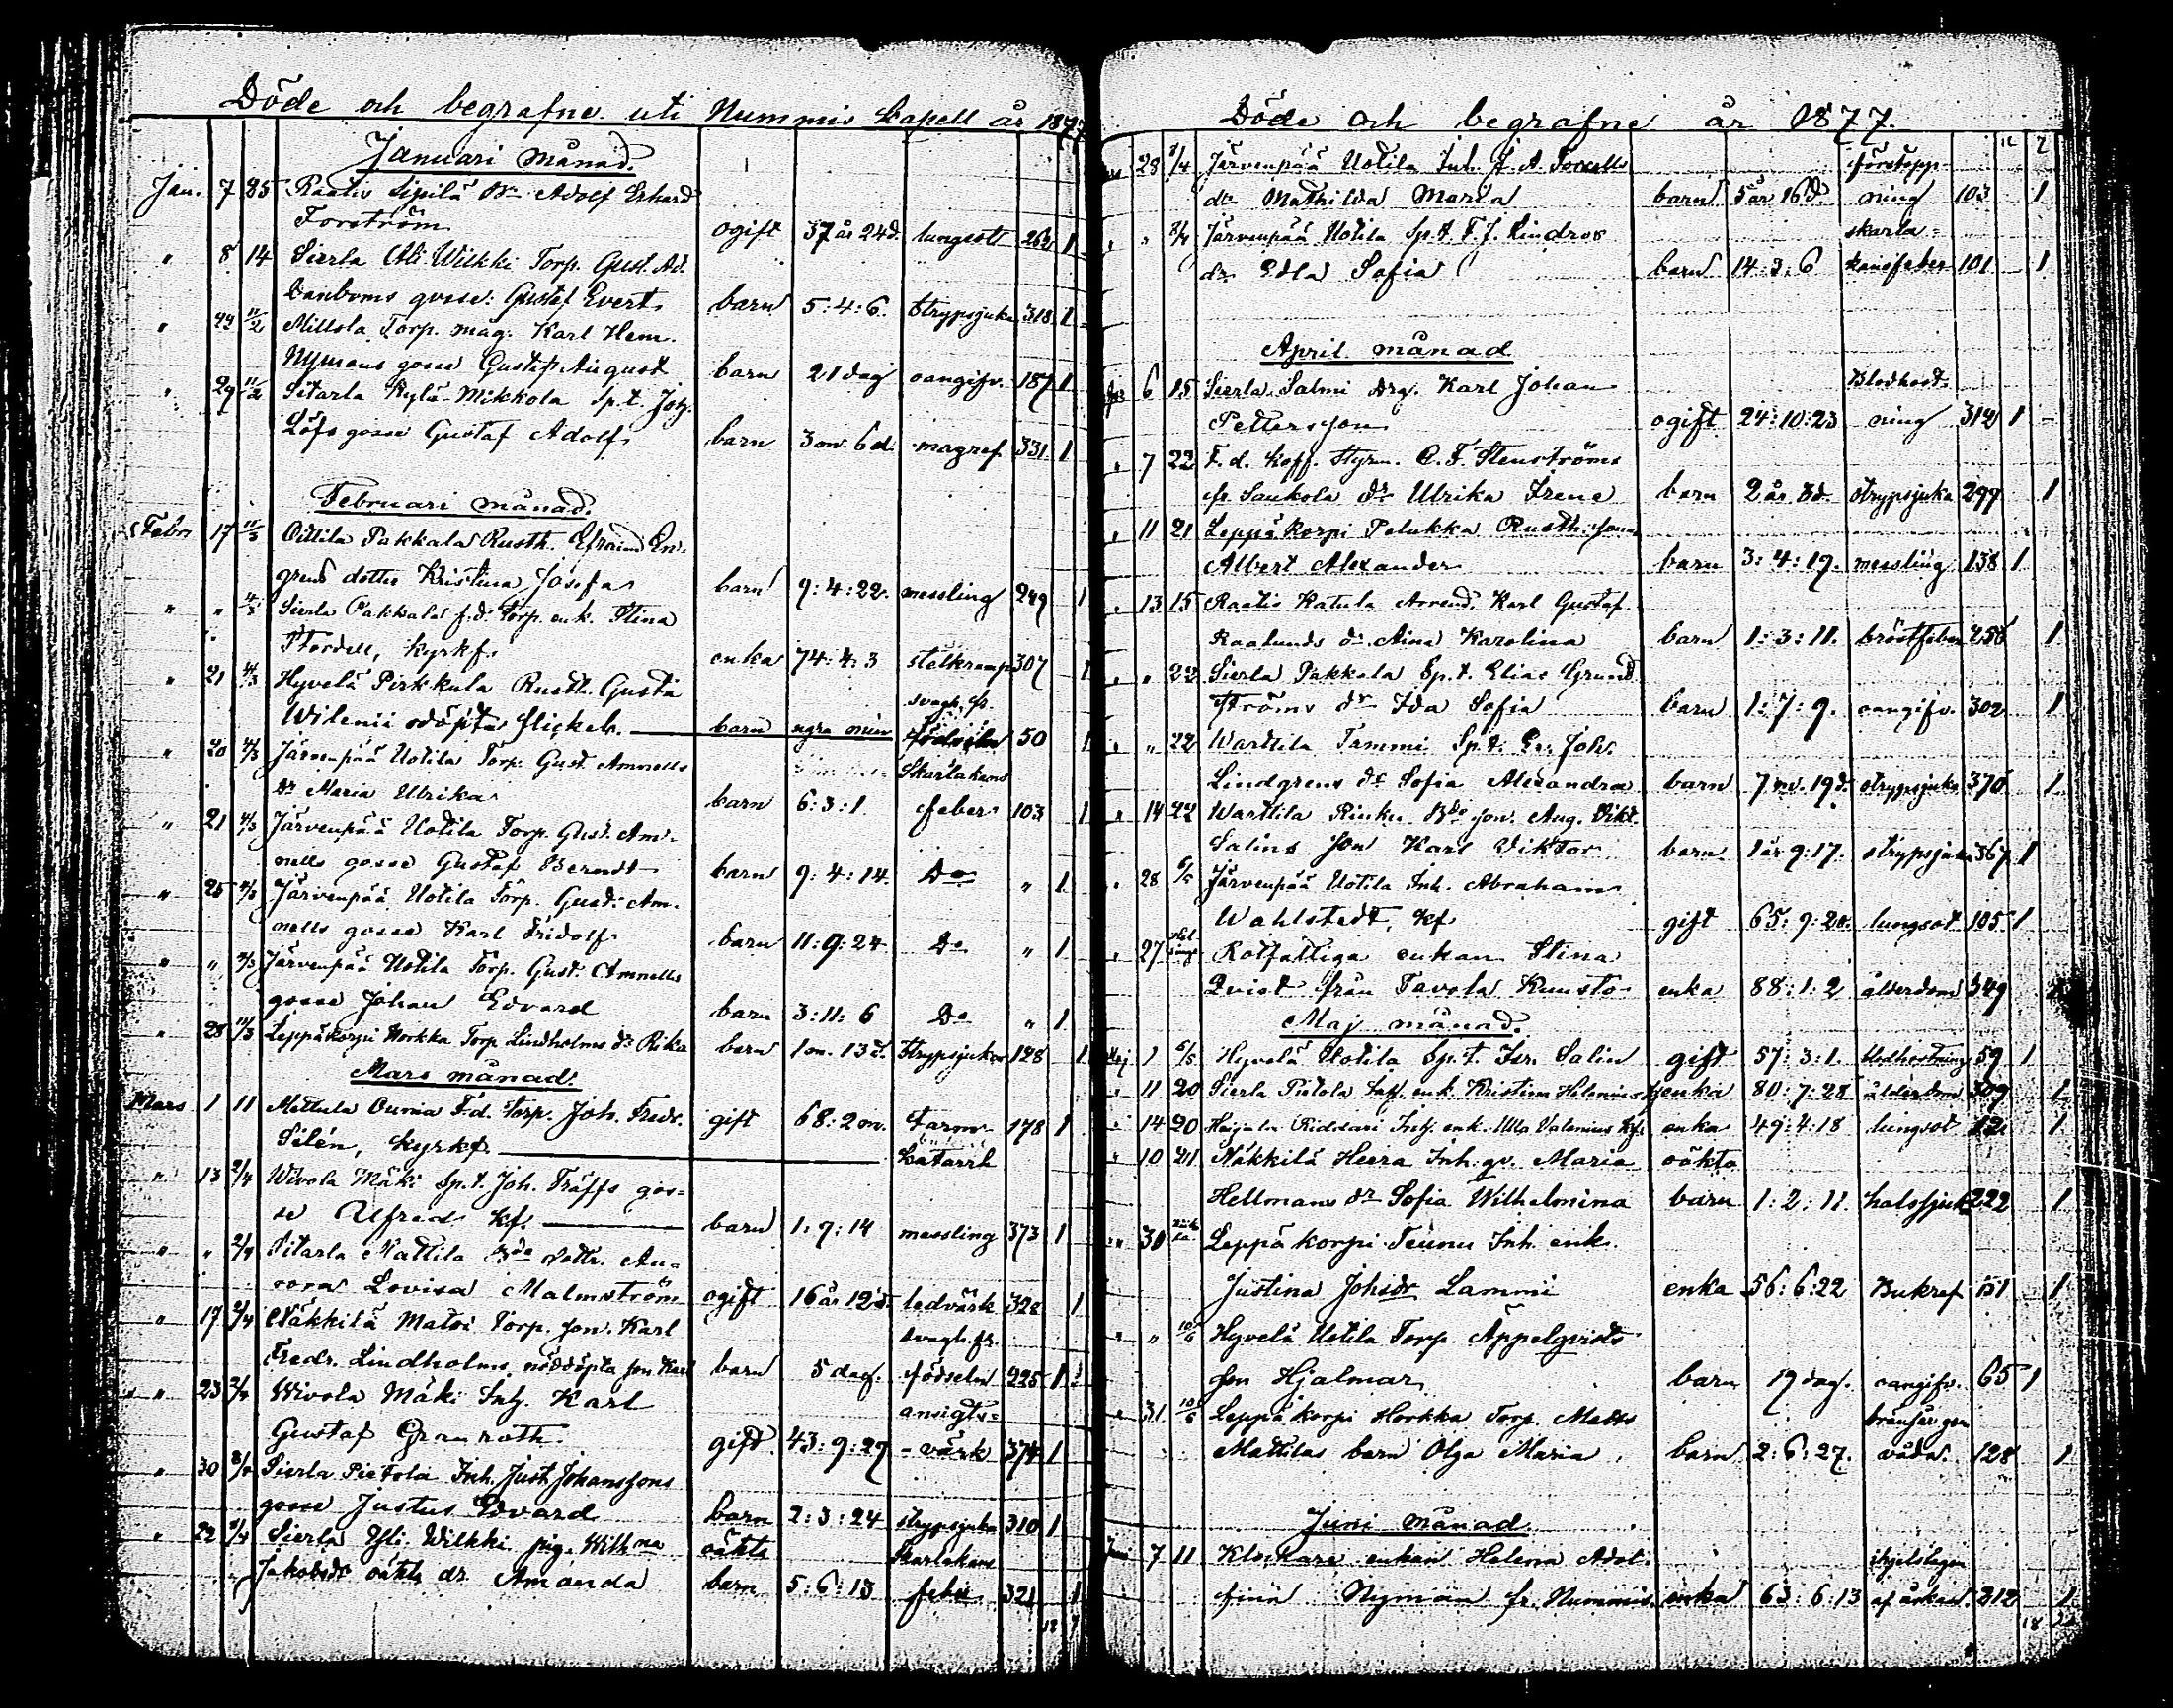 Döde och begrafne uti Nummis Capell år 1877
Januari månad.
Jan. 7 25 Raatis Sipilä Adolf Erhard
Forström ogift 37 år 24 d. lungsot 262 1
" 8 14 Sierla Yli Wilkki Torp. Gust. Ad.
Danboms gosse Gustaf Evert barn 5:4:6. Strypsjuka 318 1
" 11/2 Millola Torp. måg. Karl Hem.
Nymans gosse Gustaf August barn 21 dag oangifv. 187 1
" 29 11/2 Sitarla Kylä-Mikkola Sp.t. Joh.
Löfs gosse Gustaf Adolf barn 3 m. 6 d. magref 331 1
Februari månad.
Febr 17 11/3 Oittila Pakkala Rusth. Efraim En-
grens dotter Kristina Josefa barn 9:4:22. messling 249 1
" " 4/3 Sierla Pakkala f.d. Torp. enk. Stina
Flordell, kyrkf. enka 74:4:3 stelkramp 307 1
" 21 4/3 Hyvelä Pirkkula Rusth. Gusta svagh. fr.
Wilenii odöpta flickeb. barn ngra min födseln 50 1
" 20 4/3 Järvenpää Uotila Torp. Gust. Amnells Skarlakans
dr Maria Ulrika barn 6:3:1. feber 103 1
" 21 4/3 Järvenpää Uotila Torp. Gust. Am-
nells gosse Gustaf Berndt barn 9:4:14. Do " 1
" 25 4/3 Järvenpää Uotila Torp. Gust. Am-
nells gosse Karl Fridolf barn 11:9:24 Do " 1
" " 4/3 Järvenpää Uotila Torp. Gust. Amnells
gosse Johan Edvard barn 3:11:6 Do " 1
" 28 11/3 Leppäkorpi Horkka Torp. Lindholms dr Rika barn 1 m. 13 d. Strypsjuka 128 1
Mars månad.
Mars 1 11 Mettula Ounia F.d. Torp. Joh. Fredr. gift 68:2 m. Tarm- 178 1
Silén, kyrkf. katarrh
" 13 2/4 Wivola Mäki Sp.t. Joh. Träffs gos-
se Alfred kf. barn 1:7:14 messling 373 1
" " 2/4 Sitarla Mattila Bde dottr. Au-
rora Lovisa Malmström ogift 16 år 12 d. ledvärk 328 1
" 17 2/4 Näkkilä Matoi Torp. son. Karl svagh. fr.
Fredr. Lindholms nöddöpta son Karl barn 5 dag. födseln 225 1
" 23 2/4 Wivola Mäki Inh. Karl ansigts-
Gustaf Granroth. gift 43:9:29 -värk 374 1
" 30 8/4 Sierla Pietola Inh. Just. Johanssons
gosse Justus Edvard barn 2:3:24 strypsjuka 310 1
" 22 Sierla Yli-Wilkki pig. Wilhma oäkta Skarlakans
Jakobsdr oäkta dr. Amanda barn 5:6:13 feber 321 1
Döde och begrafne år 1877.
28 8/4 Järvenpää Uotila Inh. J. A. Forsells förstopp-
dr Mathilda Maria barn 5 år 16 d. ning 103 1
" " 8/4 Järvenpää Uotila Sp.t. F. J. Lindros skarla-
dr Edla Sofia barn 14:3:6 kansfeber 101 1
April månad
6 15 Sierla Salmi drg. Karl Johan Blodhost-
Pettersson ogift 24:10:23 ning 312 1
" 7 22 F. d. Koff. Styrm. C. F. Stenströms
fr Saukola dr Ulrika Irene barn 2 år 8 d. strypsjuka 299 1
" 11 21 Leppäkorpi Pelukka Rusth.
Albert Alexander barn 3:4:19. messling 138 1
" 13 15 Raatis Katula Arrend. Karl Gustaf
Roslunds dr Aina Karolina barn 1:3:11. bröstfeber 258 1
" " 22 Sierla Pakkala Sp.t. Elias Grund-
ströms dr Ida Sofia barn 1:7:9. oangifv. 302 1
" " 22 Warttila Tammi Sp.t. Joh.
Lindgrens dr Sofia Alexandra barn 7 m. 19 d. strypsjuka 370 1
" 14 22 Warttila Rinku Bde son. Aug. Vikt.
Salins son Karl Viktor barn 1 år 9:17. strypsjuka 367 1
" 28 6/5 Järvenpää Uotila Inh. Abraham
Wahlstedt, kf gift 65:9:20. lungsot 105 1
" 27 Rotfattiga enkan Stina
Qvist från Tavola Kunsto enka 88:1:2 ålderdom 349
Maj månad.
Maj 1 6/5 Hyvelä Uotila Sp.t. Isr. Salin gift 57:3:1. blodhostning 59 1
" 11 20 Sierla Pietola enk. Kristina Helenius enka 80:7:28 ålderdom 309 1
" 14 20 Haijala Riddari Inh. enk. Ulla Valenius kf. enka 49:4:18 lungsot 12 1
" 10 21 Näkkilä Heera Inh. qv. Maria oäkta
Hellmans dr Sofia Wilhelmina barn 1:2:11. halssjuk 222 1
" 30 Leppäkorpi Teunu Inh. enk.
Justina Johsdr Lammi enka 56:6:22 Bukref 151 1
" " 10/6 Hyvelä Uotila Torp. Äppelqvists
son Hjalmar barn 19 dag. oangifv. 65 1
" 31 10/6 Leppäkorpi Horkka Torp. Matts
Mattilas barn Olga Maria barn 2:6:27. våda. 128 1
Juni månad.
Juni 7 11 Klockare enkan Helena Adol- ihjelslagen
fina Nyman fr. Nummis enka 63:6:13 af åskan. 212 1